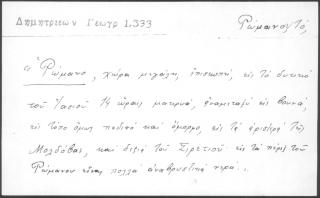 Δημητριεων Γεωγρ 1.333
Ρώμανο, τό,
"Ρώμανο, χώρα μεγάλη, ἐπισκοπή, εἰς τό δυτικό
τοῦ Ἰασιοῦ 14 ὥραις μακρυά, ἀναμεταξύ εἰς βουνά,
εἰς τόπο ὅμως παιδινό καί ὄμορφο, εἰς τά ἀριστερά τῆς
Μολδόβας, καί δεξιά τοῦ Σιρετιοῦ· εἰς τά πέριξ τοῦ
Ρωμάνου εἶναι πολλά ἀναβρυστικά νερά...